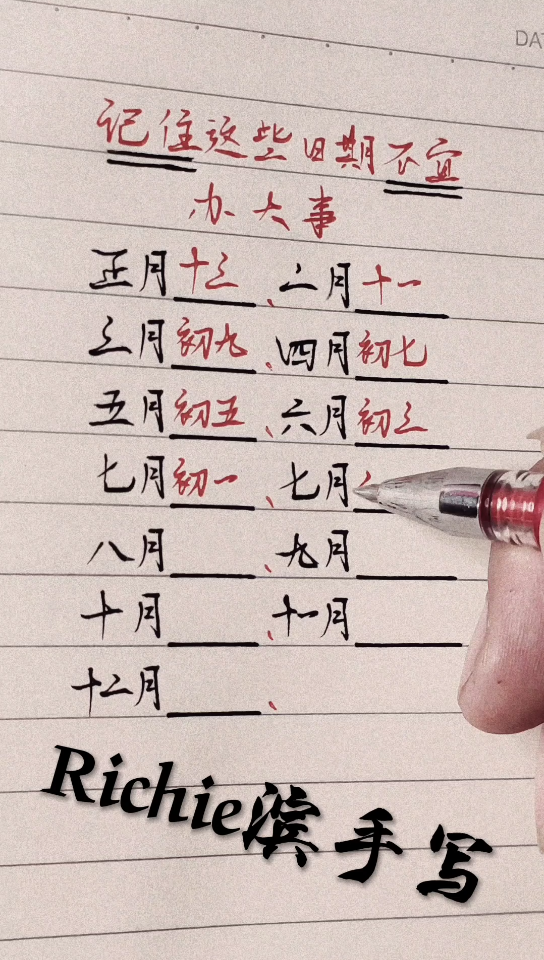 DAT
记住这些日期不宜
办大事
正月十三、二月十一
三月初九、四月初七
五月初五、六月初三
七月初一、七月
八月、九月
十月、十一月
十二月、
Richie滨手写